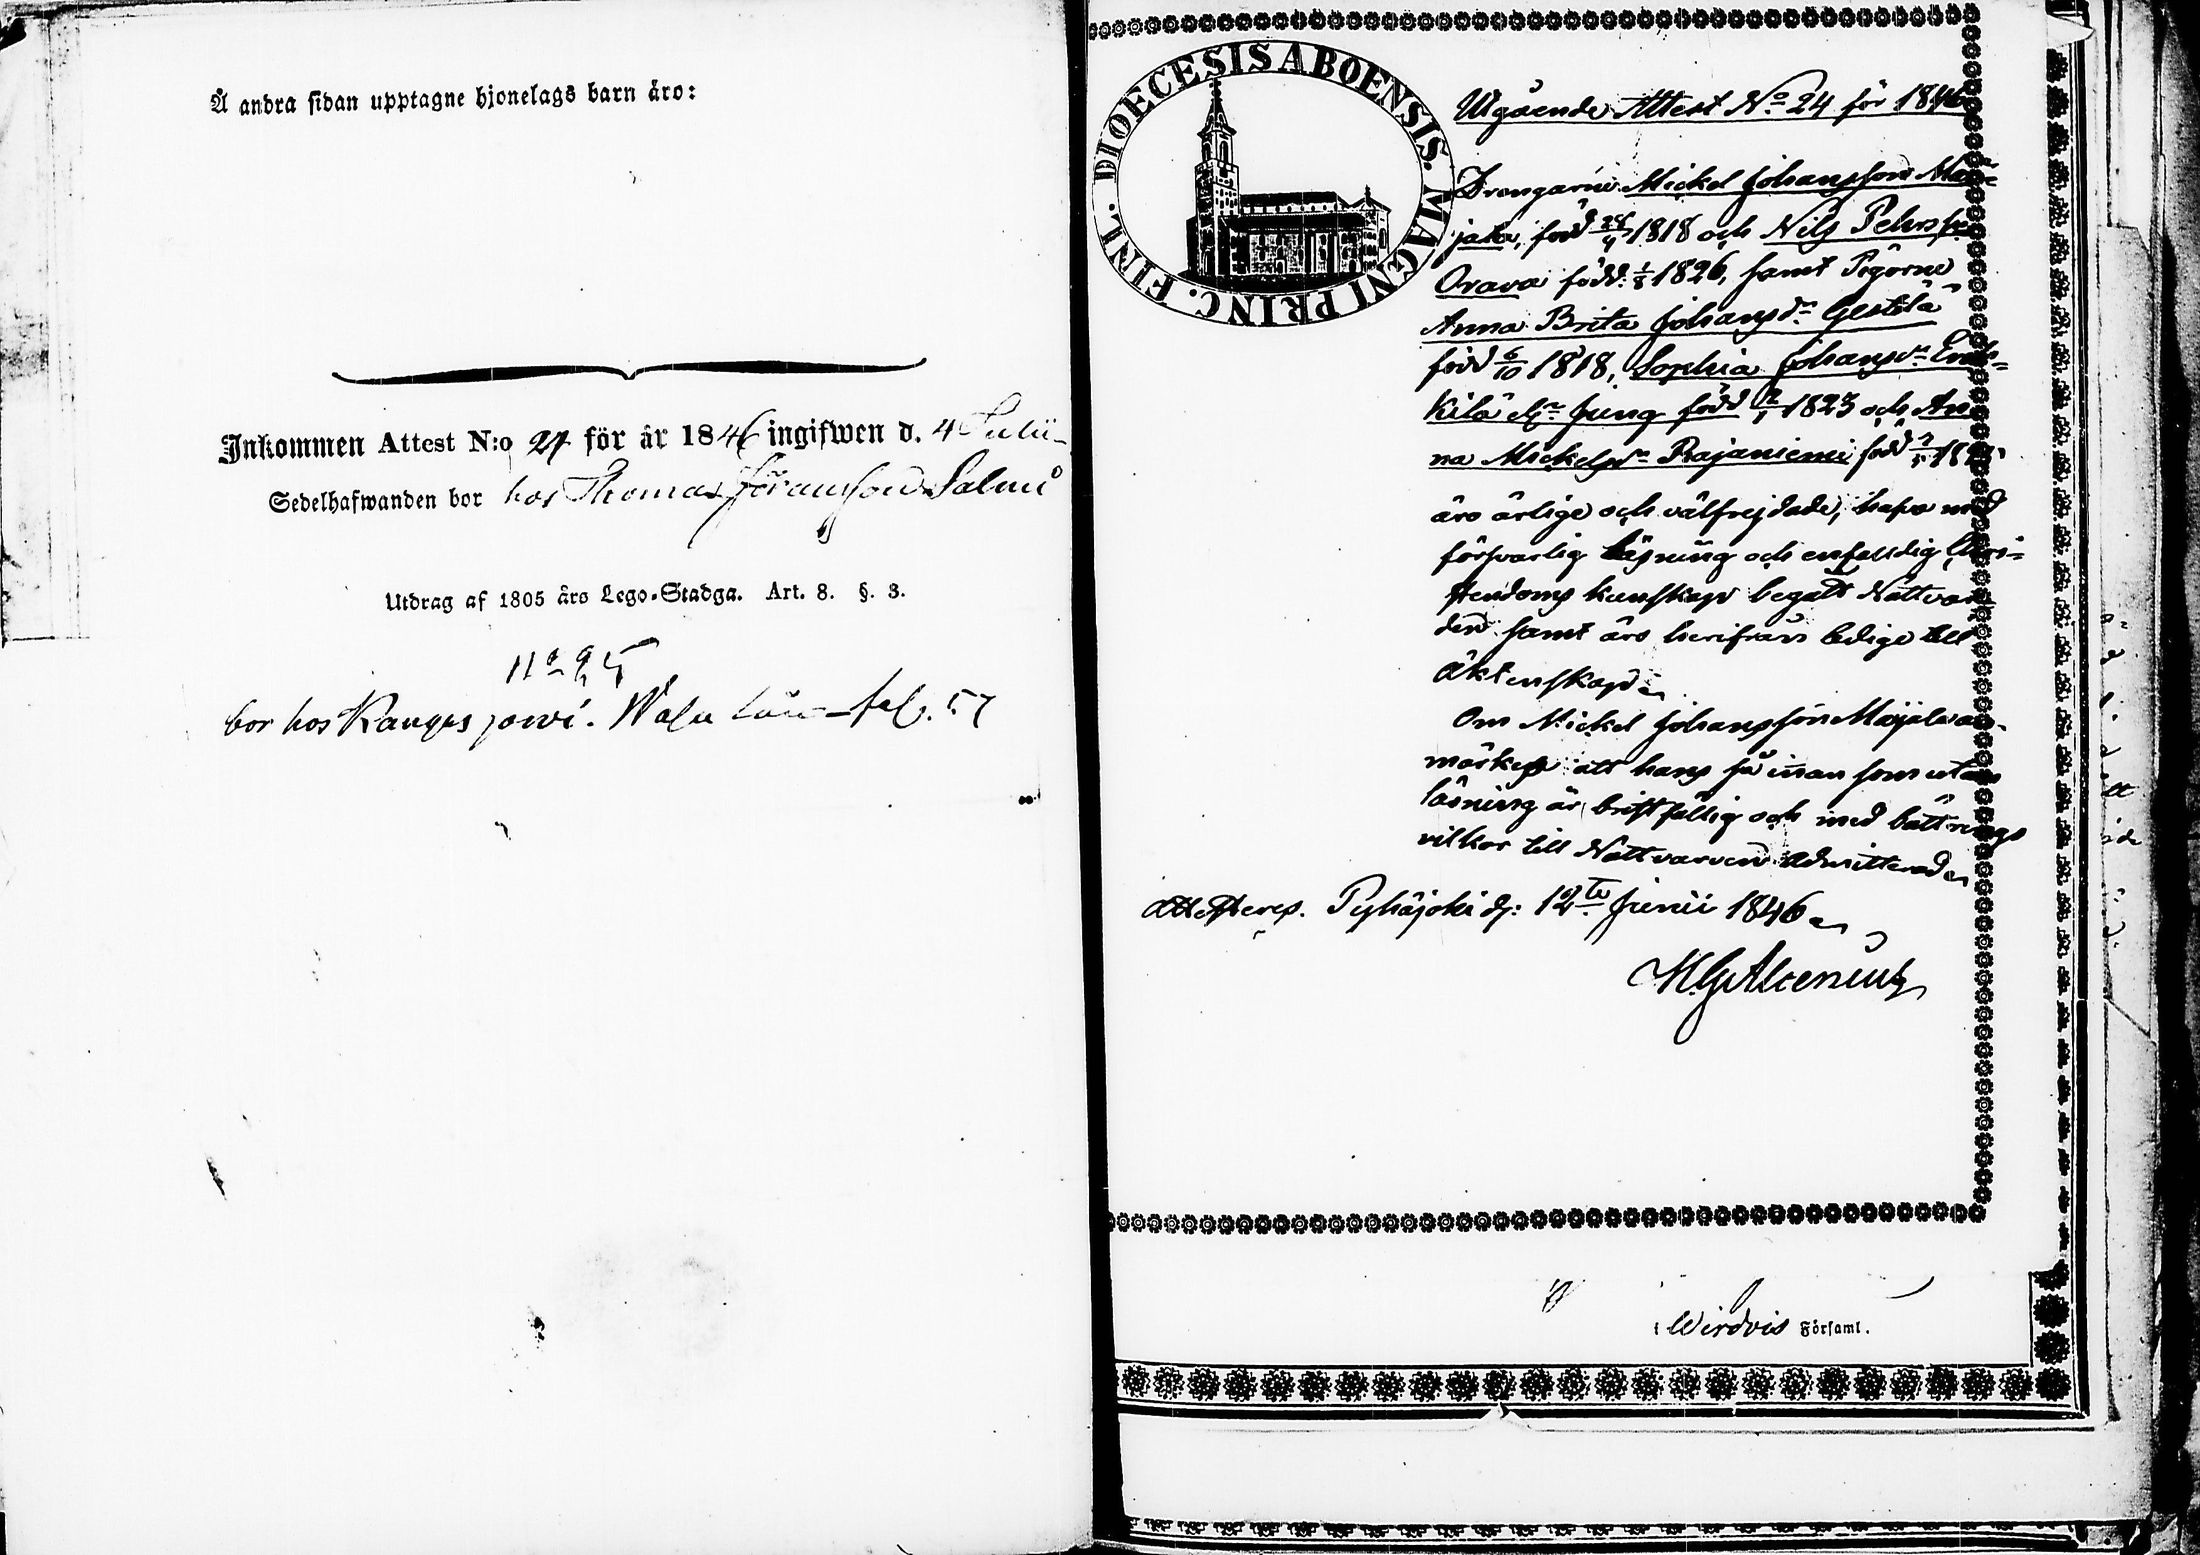 Å andra sidan upptagne hjonelags barn äro:
Inkommen Attest N:o 24 för år 1846 ingifwen d. 4 Julii
Sedelhafwanden bor hos Thomas Salmi
Utdrag af 1805 års Lego-Stadga. Art. 8. §. 3.
bor hos fol. 57
DIOECESIS ABOENSIS. MAGNI PRINC. FINL.
Utgående Attest No 24 för 1846
Drengarne Mickel Johansson Ma-
jala, född 1818 och Nils Pehrss.
Orava född. 1/8 1826, samt Pigorne
Anna Brita Johansdr
född 6/10 1818, Sophia Johansdr
kilä Jung född 1823 och An
na Mickelsdr Rajaniemi född
äro ärlige och välfrejdade, hafva med
försvarlig läsning och enfaldig Chri-
stendoms kunskap begått Nattvar
den samt äro herifrån ledige till
äktenskap
Om Mickel Johansson Majala an-
märkes att hans så innan som utan
läsning är bristfällig och med bättrings
vilkor till Nattvarden admitterad
Attesteras. Pyhäjoki d: 12te Junii 1846
i Wirdois Församl.